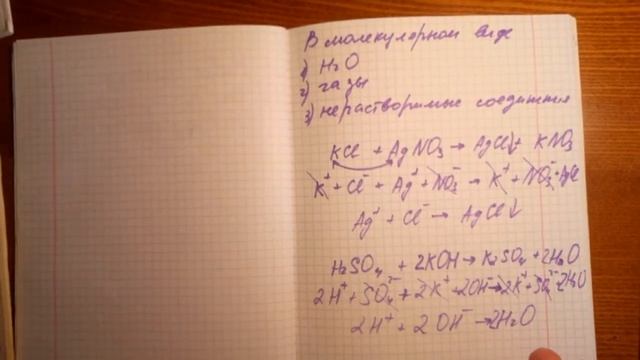 В молекулярном виде
1) H₂O
2) газы
3) нерастворимые соединения
KCl + AgNO₃ → AgCl↓ + KNO₃
K⁺ + Cl⁻ + Ag⁺ + NO₃⁻ → K⁺ + NO₃⁻ + AgCl
Ag⁺ + Cl⁻ → AgCl↓
H₂SO₄ + 2KOH → K₂SO₄ + 2H₂O
2H⁺ + SO₄²⁻ + 2K⁺ + 2OH⁻ → 2K⁺ + SO₄²⁻ + 2H₂O
2H⁺ + 2OH⁻ → 2H₂O